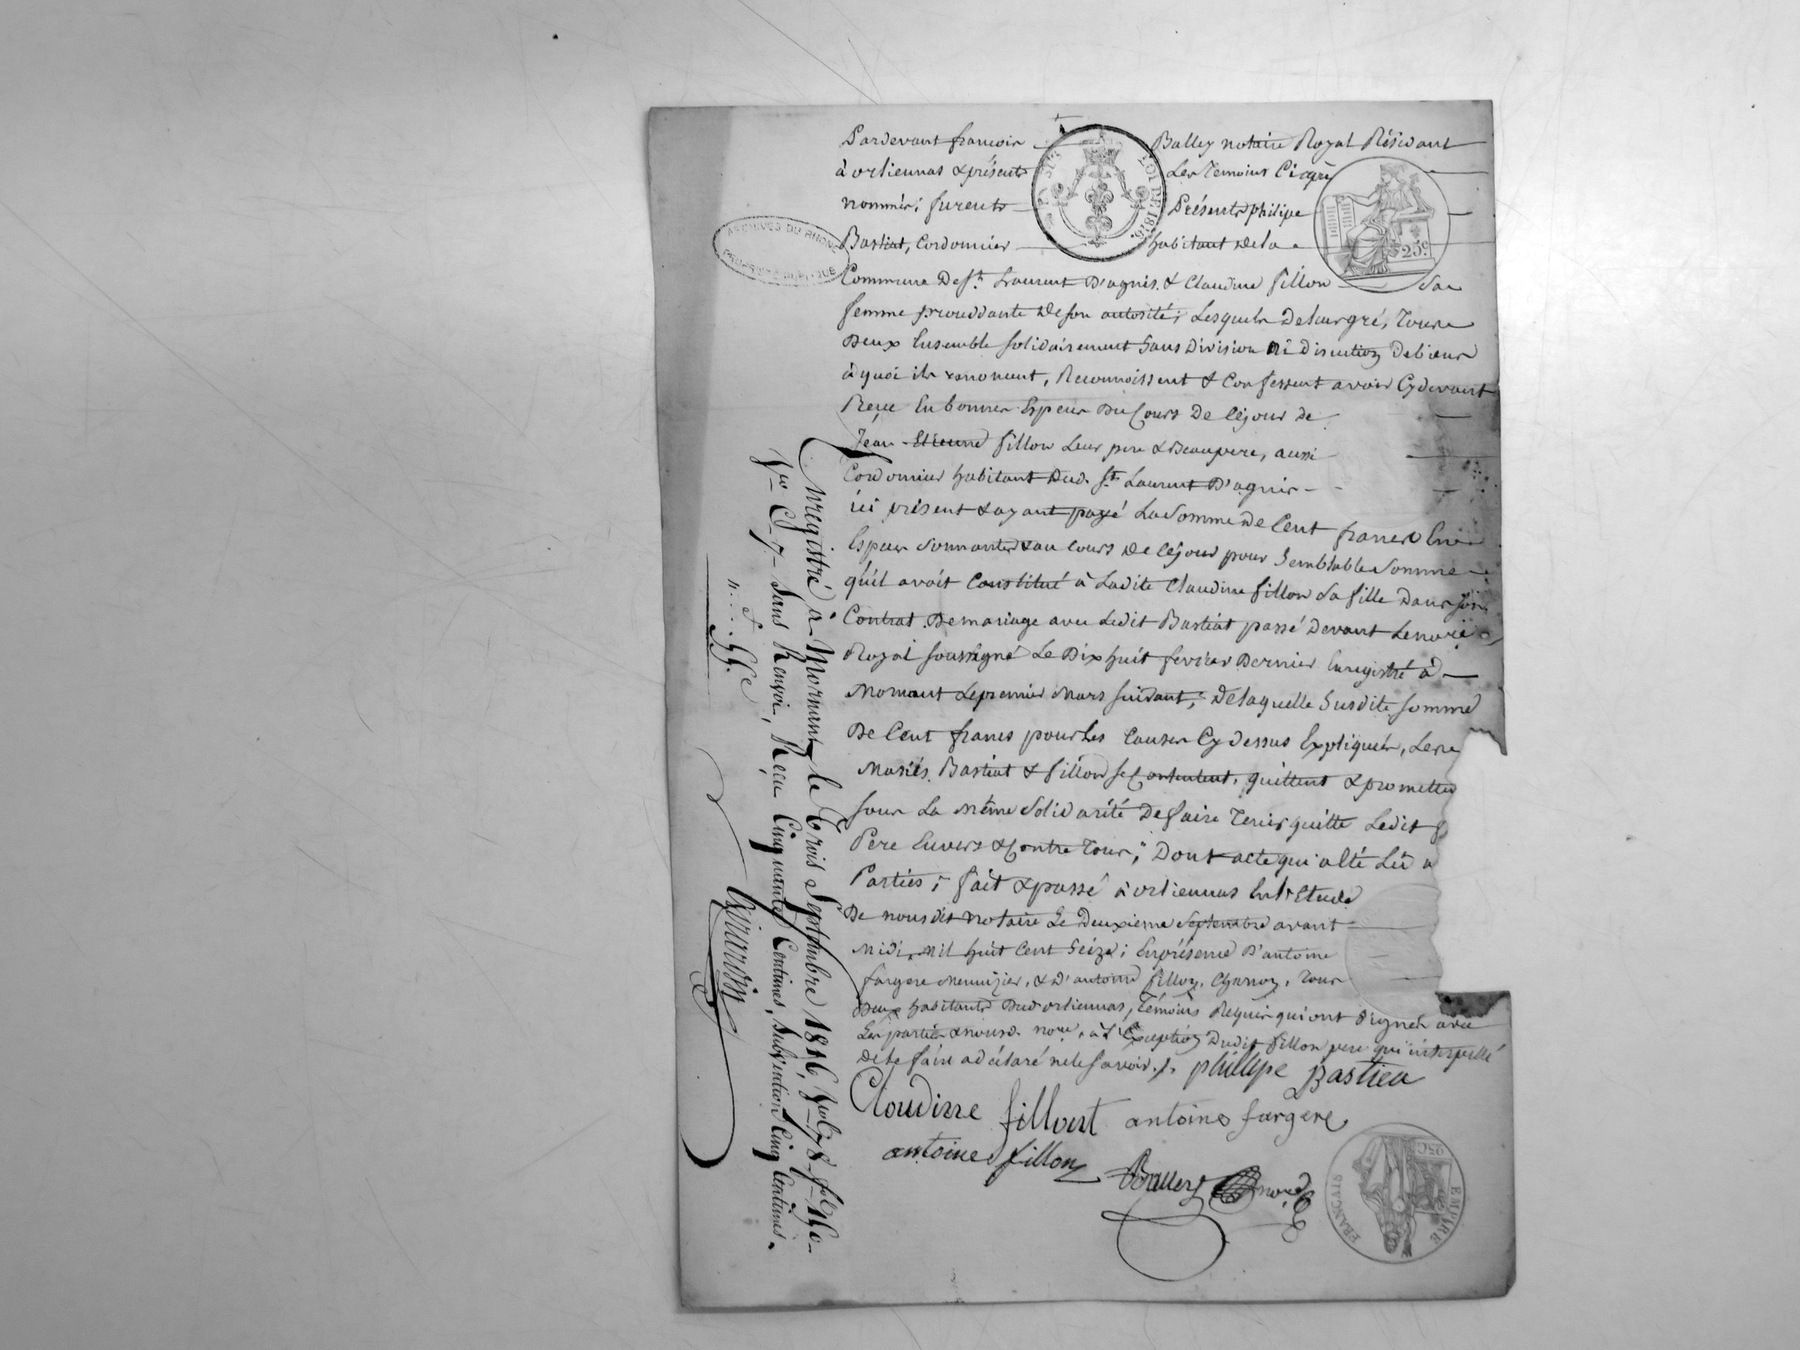 Pardevant francois Balley notaire Royal Résidant
à orliennas & présents Les Temoins Ci après
nommés; furents Présents philipe
Bastiat, Cordonnier habitant dela
Commune De St. Laurent D'agnis. & Claudine fillon sa
femme procédante de son autorité; Lesquels De leur gré, Tous
Deux Ensemble solidairement Sans Division ni discution De biens
à quoi ils renoncent, Reconnoissent & Confessent avoir Cy devant
Reçu En bonnes Especes Du Cours De Céjour de
Jean Etienne fillon Leur pere & Beaupere, aussi
Cordonnier habitant Dud. St. Laurent D'agnis
ici présent & ayant payé La Somme De Cent francs En
Especes sonnantes & au Cours De Céjour pour Semblable Somme
qu'il avoit Constitué à Ladite Claudine fillon sa fille Dans son
Contrat De mariage avec Ledit Bastiat passé Devant Le notre
Royal soussigné Le Dix huit fevrier Dernier Enregistré à
Mornant Le premier Mars suivant; De laquelle Susdite somme
De Cent francs pour Les Causes Cy dessus Expliquées, Les
Mariés Bastiat & fillon se Contentent, quittent & promettent
sous La même Solidarité De faire Tenir quitte Ledit
Pere Envers & Contre Tous; Dont acte qui a Eté Lû a
Parties; fait & passé à orliennas En l'Etude
De nous dit notaire Le Deuxieme Septembre avant
Midi, Mil huit Cent Seize; En présence D'antoine
fargere Menuizier, & D'antoine fillon, Charron, Tous
Deux habitants Dud orliennas, Témoins Requis qui ont signés avec
Les parties & nousd. nore, à l'Exception Dudit fillon pere qui interpellé
De le faire a déclaré ne le savoir ./.  phillipe Bastiea
Cloudinne fillont antoine fargere
antoine fillon Balley nore
Enregistré à Mornant le Trois Septembre 1816, folo 78 ro
Ce 7 Sans Renvoi, Reçu Cinquante Centimes, Subvention Cinq Centimes.
f c
55
Girardin
ARCHIVES DU RHONE
LOI DE 1816
25c
EMPIRE FRANÇAIS
25C